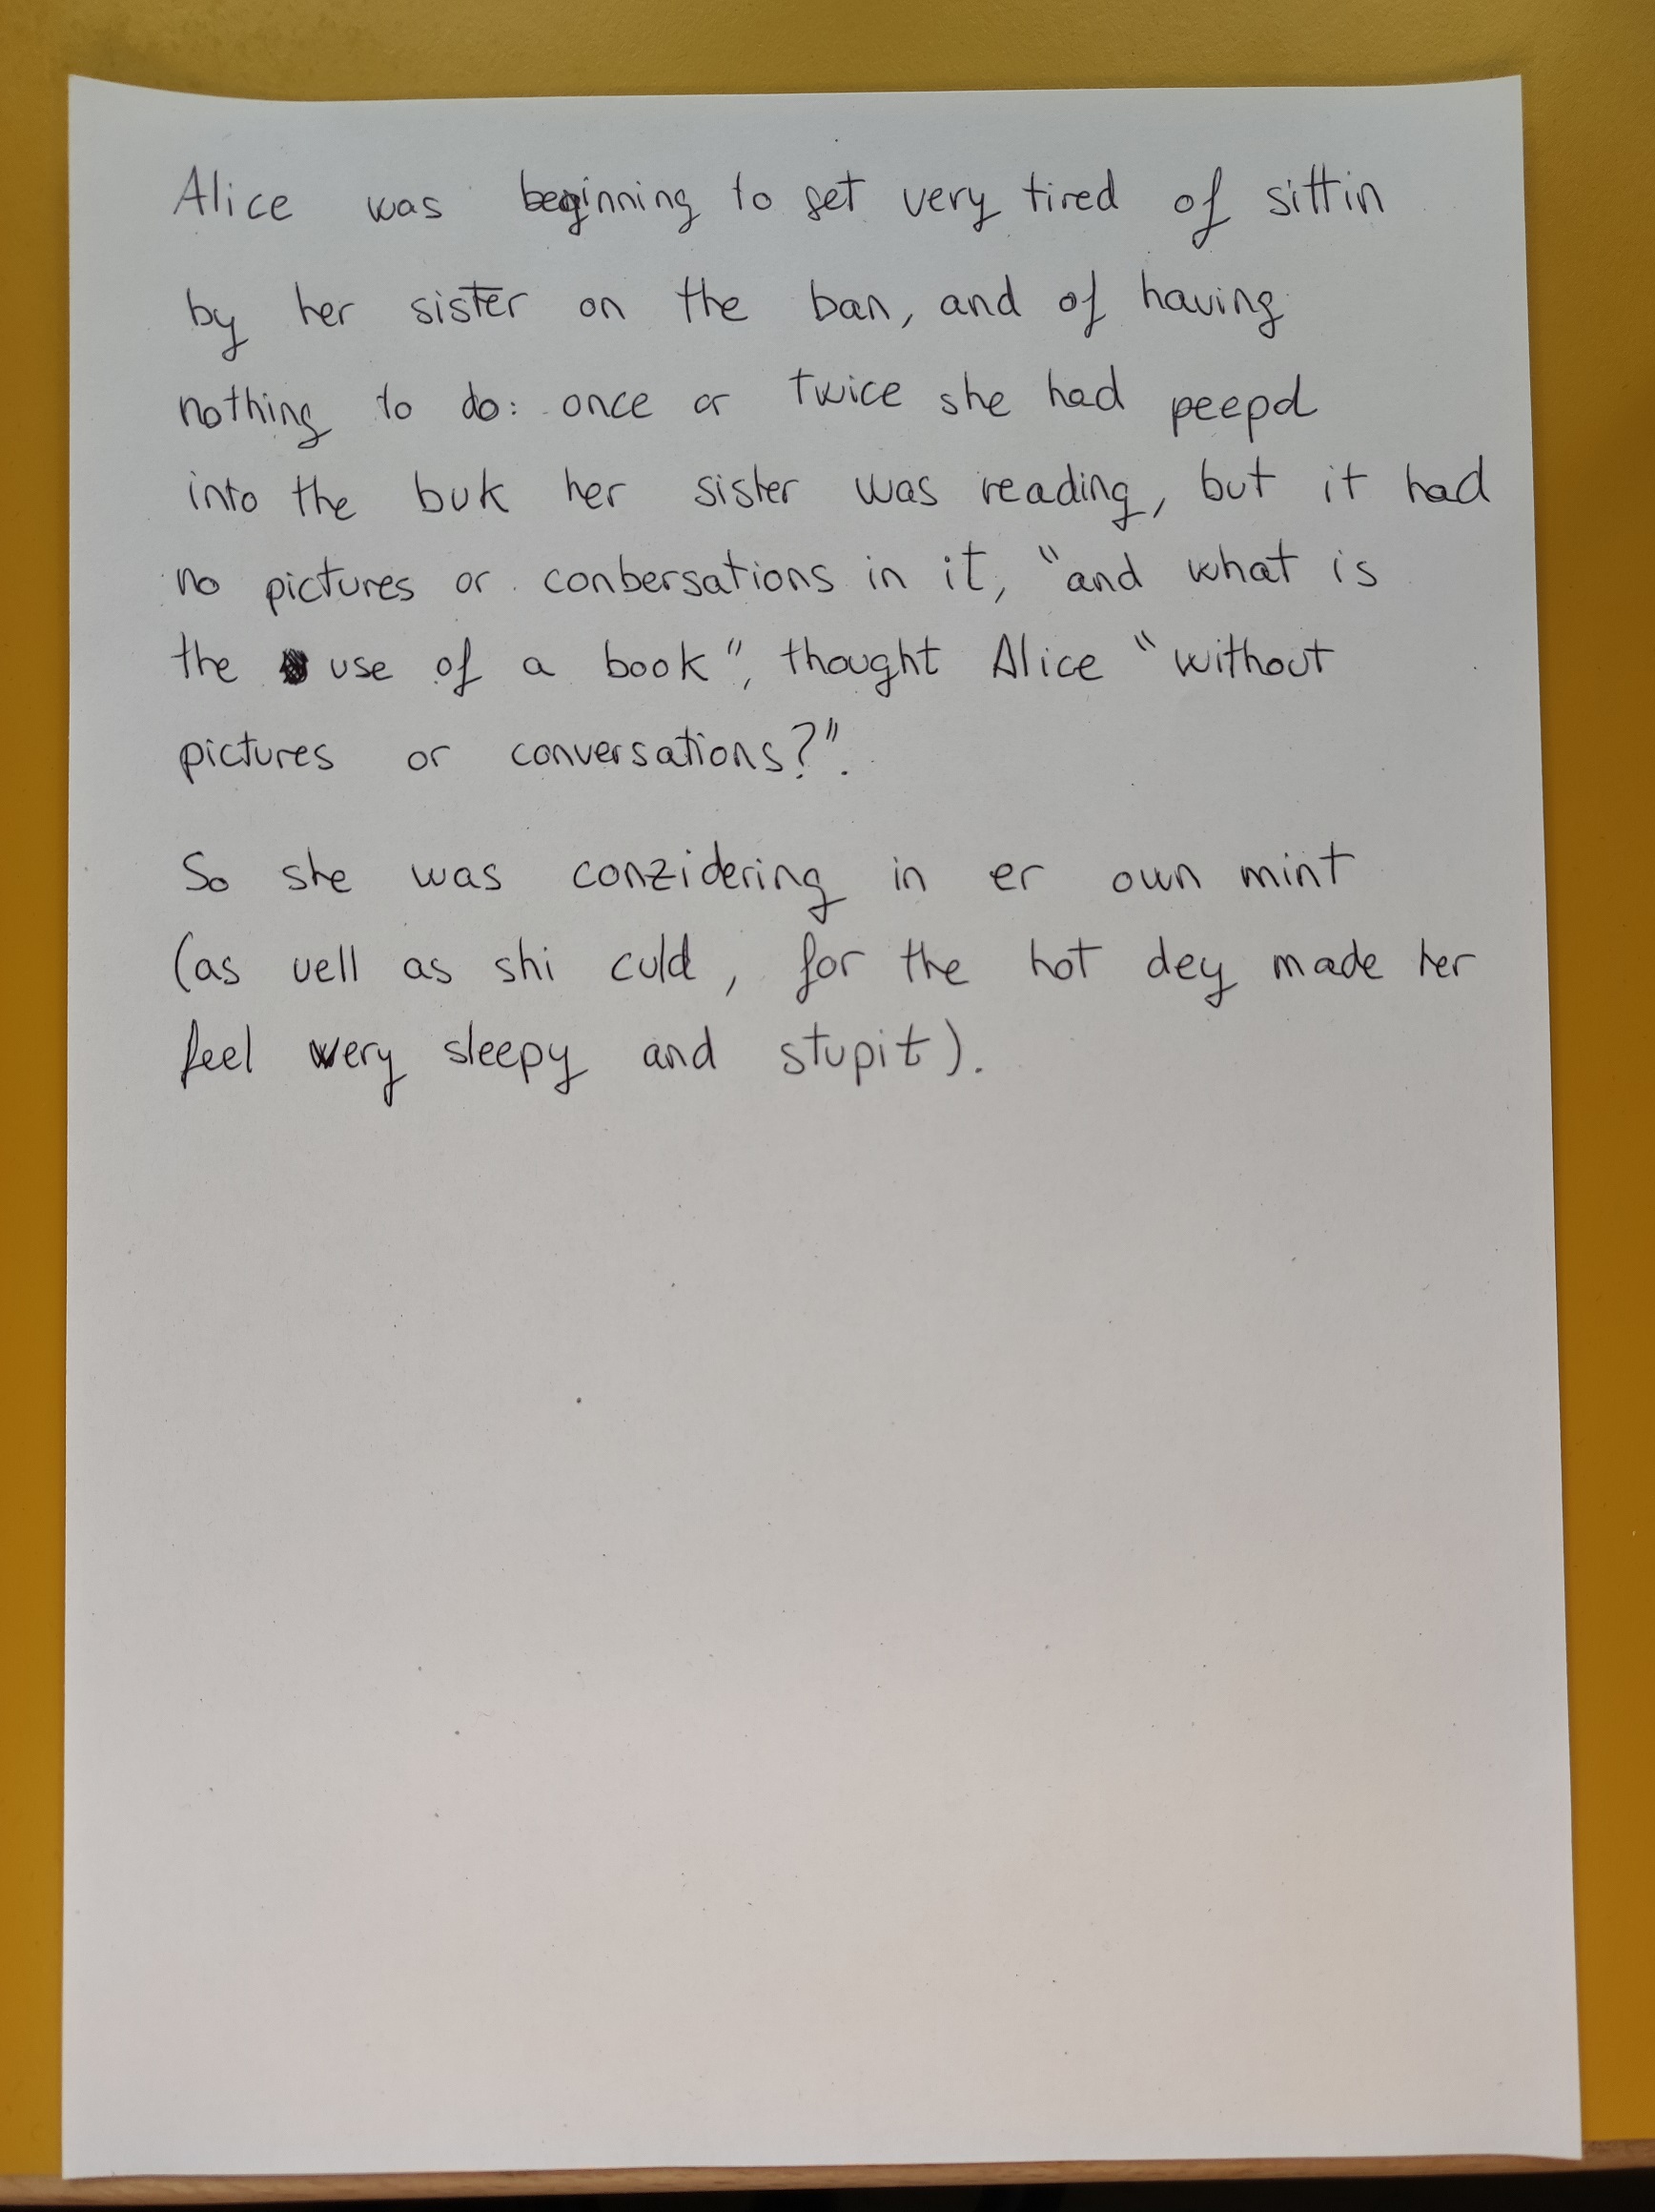 Alice was beginning to get very tired of sittin
by her sister on the ban, and of having
nothing to do: once or twice she had peepd
into the buk her sister was reading, but it had
no pictures or conbersations in it, "and what is
the use of a book", thought Alice "without
pictures or conversations?".
So she was conzidering in er own mint
(as uell as shi culd, for the hot dey made her
feel wery sleepy and stupit).